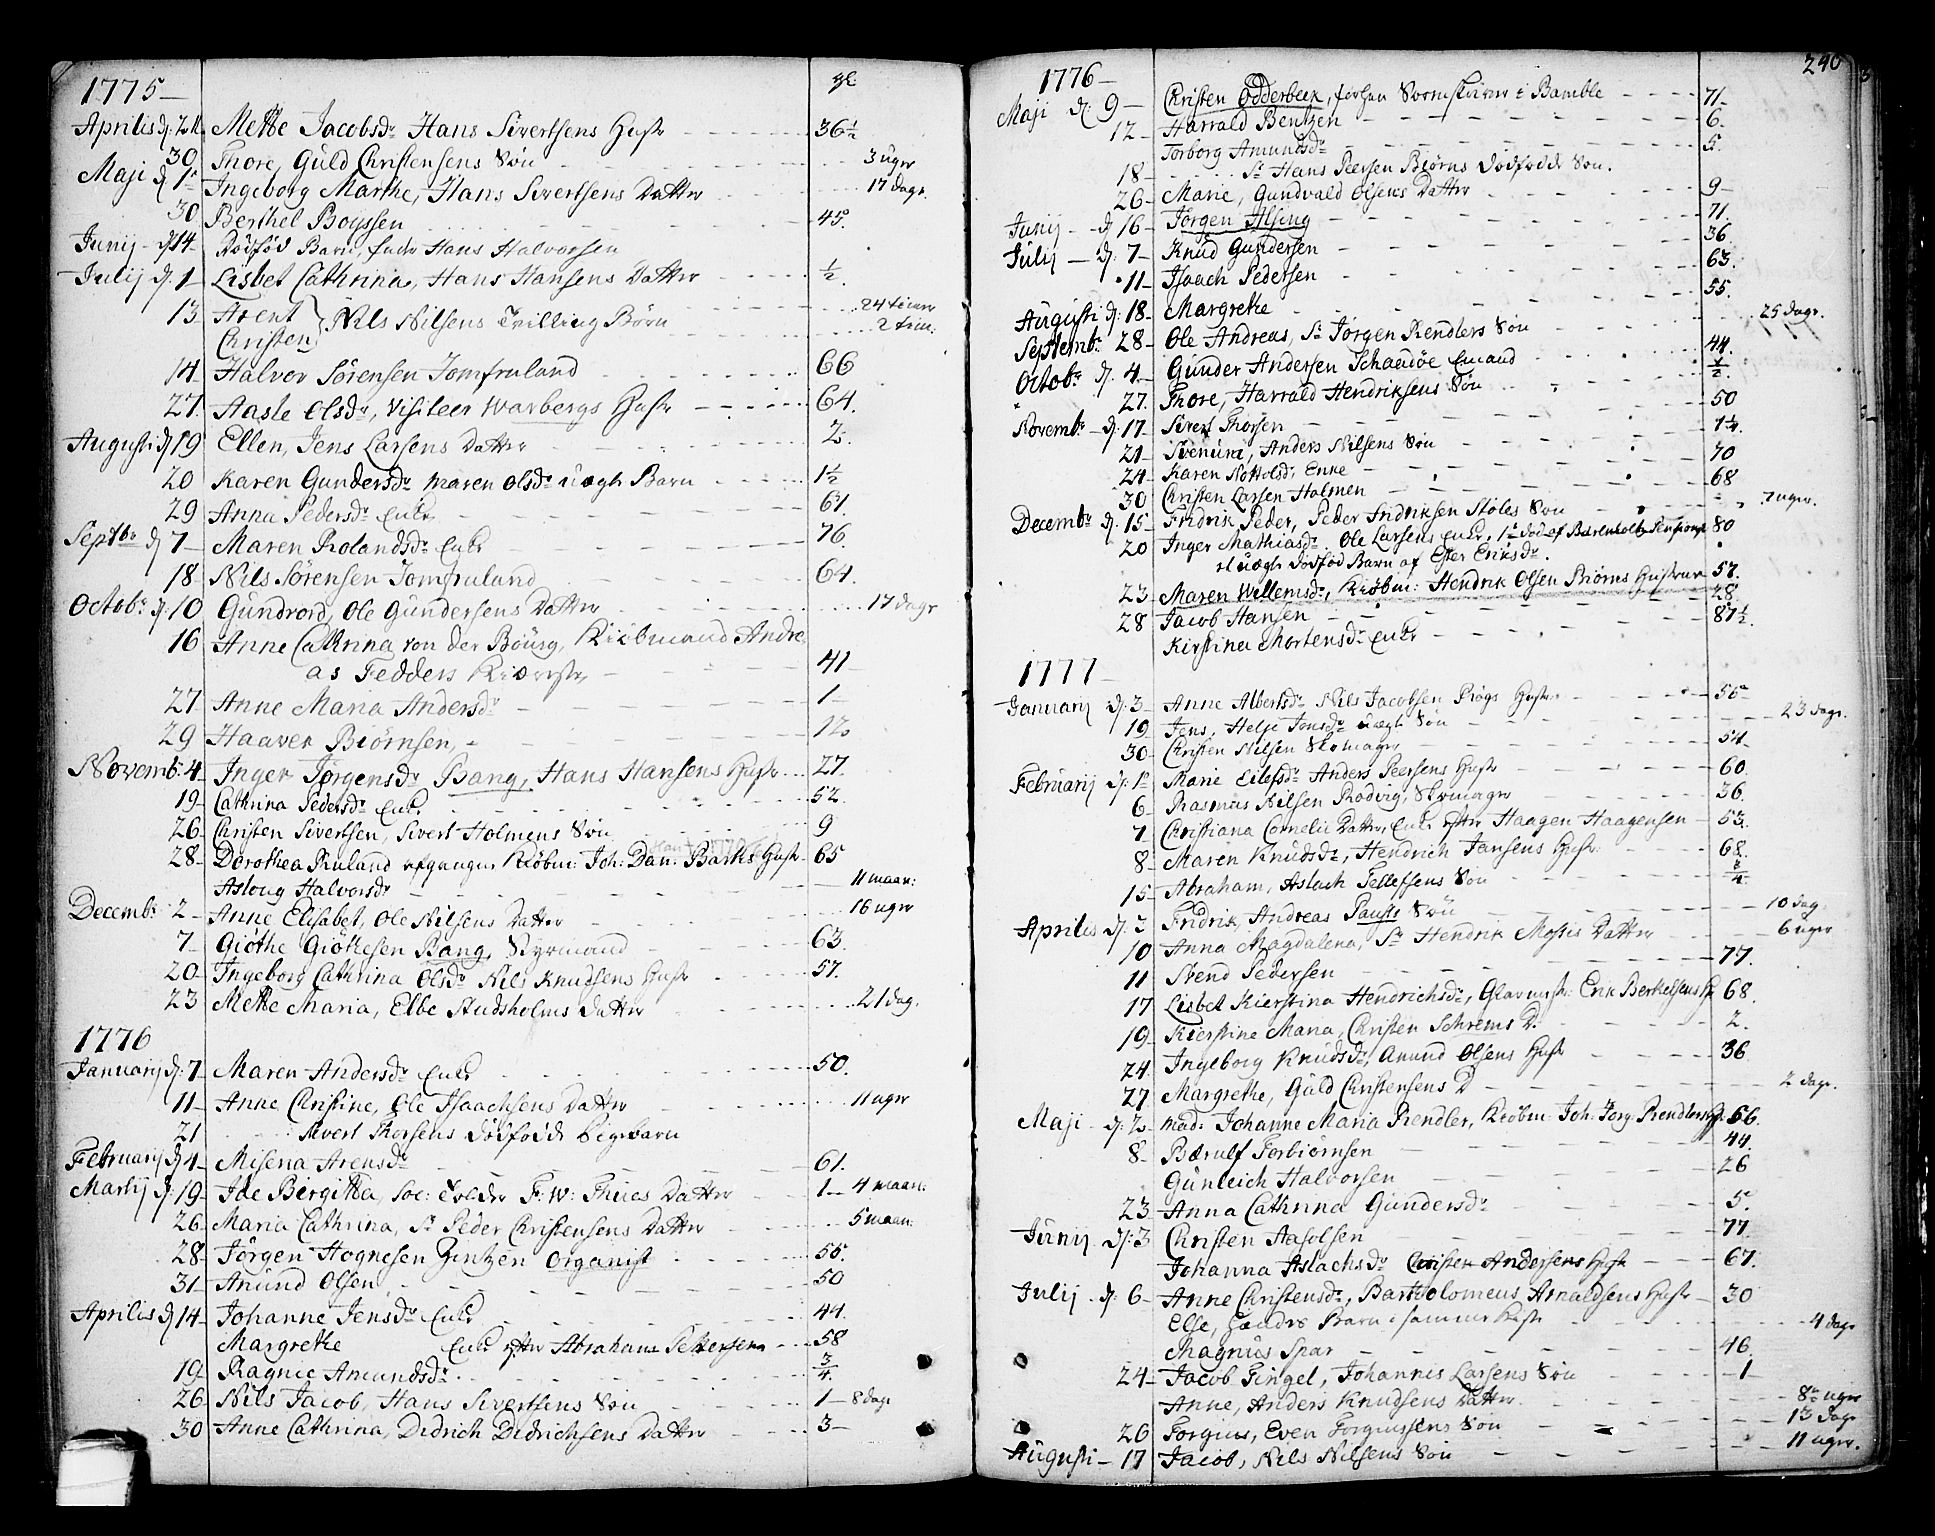 1775
Aprilis d. 24 Mette Jacobsdr Hans Sivertsens Hustr 36 1/2
30 Thore, Guld Christensens Søn 3 uger
Maji d 1 Ingeborg Marthe, Hans Sivertsens Datter 17 dage
30 Berthel Boyssen 45
Junij d 14 Dødfød Barn, Hans Halvorsen
Julij d. 1 Lisbet Cathrina, Hans Hansens Datter 1/2
13 Arent 24 timer
Christen } Nils Nilsens Tvilling Børn 2 tim.
14 Halvor Sørensen Jomfruland 66
27 Aasle Olsdr, Visiteer Warbergs Hustr 64.
Augusti d 19 Ellen, Jens Larsens Datter 2
20 Karen Gundersdr Maren Olsdr uægte Barn 1 1/2
29 Anna Pedersdr Enke 61.
Septbr d 7 Maren Rolandsdr Enke 76
18 Nils Sørensen Jomfruland 64.
Octobr d. 10 Gundrord, Ole Gundersens Datter 17 dage
16 Anne Cathrina von der Bourg, Kiøbmand Andre
as Fedders 41
27 Anne Maria Andersdr 1
29 Haaver Biørnsen 12
Novemb: 4 Inger Jørgensdr Bang, Hans Hansens Hustr 27.
19 Cathrina Pedersdr Enke 52.
26 Christen Sivertsen, Sivert Holmens Søn 9
28 Dorothea Ruland afgangne Kiøbm: Joh: Dan: Barths Hustr 65
Asloug Halvorsdr 11 maan:
Decembr 2 Anne Elisabet, Ole Nilsens Datter 16 uger
7 Giøthe Giøttesen Bang, Styrmand 63.
20 Ingeborg Cathrina Olsdr Nils Knudsens Hustr 57.
23 Mette Maria, Ebbe Studsholms Datter 21 dag.
1776
Januarij d. 7 Maren Andersdr Enke 50.
11 Anne Christine, Ole Isaachsens Datter 11 uger
21 Sivert Thorsens dødfødde Pigebarn
Februarij d 4 Misena Arensdr 61.
Martij d. 19 Ide Birgitta, F: W: Thues Datter 1 4 maan:
26 Maria Cathrina, Sr Peder Christensens Datter 5 maan:
28 Jørgen Hognesen Gintzen Organist 55.
31 Anund Olsen 50
Aprilis d 14 Johanne Jensdr Enke 44.
Margrethe Enke efter Abraham Pettersen 58
19 Ragnie Amundsdr 3/4.
26 Nils Jacob, Hans Sivertsens Søn 1 8 dage
30 Anne Cathrina, Didrich Didrichsens Datter 3
240
1776
Maji d. 9 Christen Odderbeek, forhen Sorenskriver i Bamble 71
12 Harrald Bentzen 6.
Torborg Amundsdr 5.
18 Sr Hans Peersen Biørns dødfødde Søn.
26 Marie, Gundvald Olsens Datter 9
Junij d 16 Jørgen Alsing 71.
Julij d. 7 Knud Gundersen 36
11 Isaach Pedersen 63.
Augusti d. 18 Margrethe 55.
Septembr 28 Ole Andreas, Sr Jørgen Rendlers Søn 25 dage.
Octobr d. 4 Gunder Andersen 44.
27. Thore, Harrald Hendriksens Søn 1/2
Novembr d. 17 Sivert Thorsen 50
21 Svenum, Anders Nilsens Søn 1 1/4.
24 Karen Nottolsdr, Enke 70
30 Christen Larsen Holmen 68
Decembr d. 15 Fridrik Peder, Peder Fridriksen Støles Søn 7 uger.
20 Inger Mathiasdr Ole Larsens Enke 80
et uægte dødfød Barn af Ester Eriksdr.
23 Maren Willemsdr, Kiøbm: Hendrik Olsen Biørns Hustrue 57.
28 Jacob Hansen 28.
Kirstine Mortensdr Enke 87 1/2.
1777
Januarij d. 3 Anne Albertsdr Nils Jacobsen Hustr 55
19 Jens, Helje Jonsdr uægte Søn 23 dage.
30 Christen Nilsen Skomager 54
Februarij d. 1 Marie Eilefsdr Anders Peersens Hustr 60.
6 Rasmus Nilsen Rodvig, Skomager 36.
7 Christiana Cornelii Datter, Enke efter Haagen Haagensen 53.
8 Maren Knudsdr, Hendrich Jansens Hustr 68.
15 Abraham, Aslach Tellefsens Søn 3/4.
Aprilis d. 3 Fridrik, Andreas Pauss Søn 10 dag.
10 Anna Magdalena, Sr Hendrik Mossis Datter 6 uger
11 Svend Pedersen 77.
17 Lisbet Kierstina Hendrichsdr, Erik Berthelsens 68.
19 Kierstine Maria, Christen Schrems D. 2.
24 Ingeborg Knudsdr, Amund Olsens Hustr 36
27 Margrethe, Guld Christensens D 2 dage.
Maji d. 2 mad. Johanne Maria Rendler, Kiøbm: Joh: Jørg: Rendlers 66.
8 Bærulf Torbiørnsen 44.
Gunleich Halvorsen 26
23 Anna Cathrina Gundersdr 5.
Junij d. 3 Christen Aasolsen 77.
Johanna Aslachsdr Christen Andersens Hustr 67.
Julij d. 6 Anne Christensdr, Bartholomeus Arnaldsens Hustr 30
Else, Barn i samme Kiste 4 dage
Magnus Spar 46.
24 Jacob Pingel, Johannis Larsens Søn 1
Anne, Anders Knudsens Datter 8 uger
26 Torgius, Even Torgiussens Søn 13 dage
Augusti 17 Jacob, Nils Nilsens Søn 11 uger.